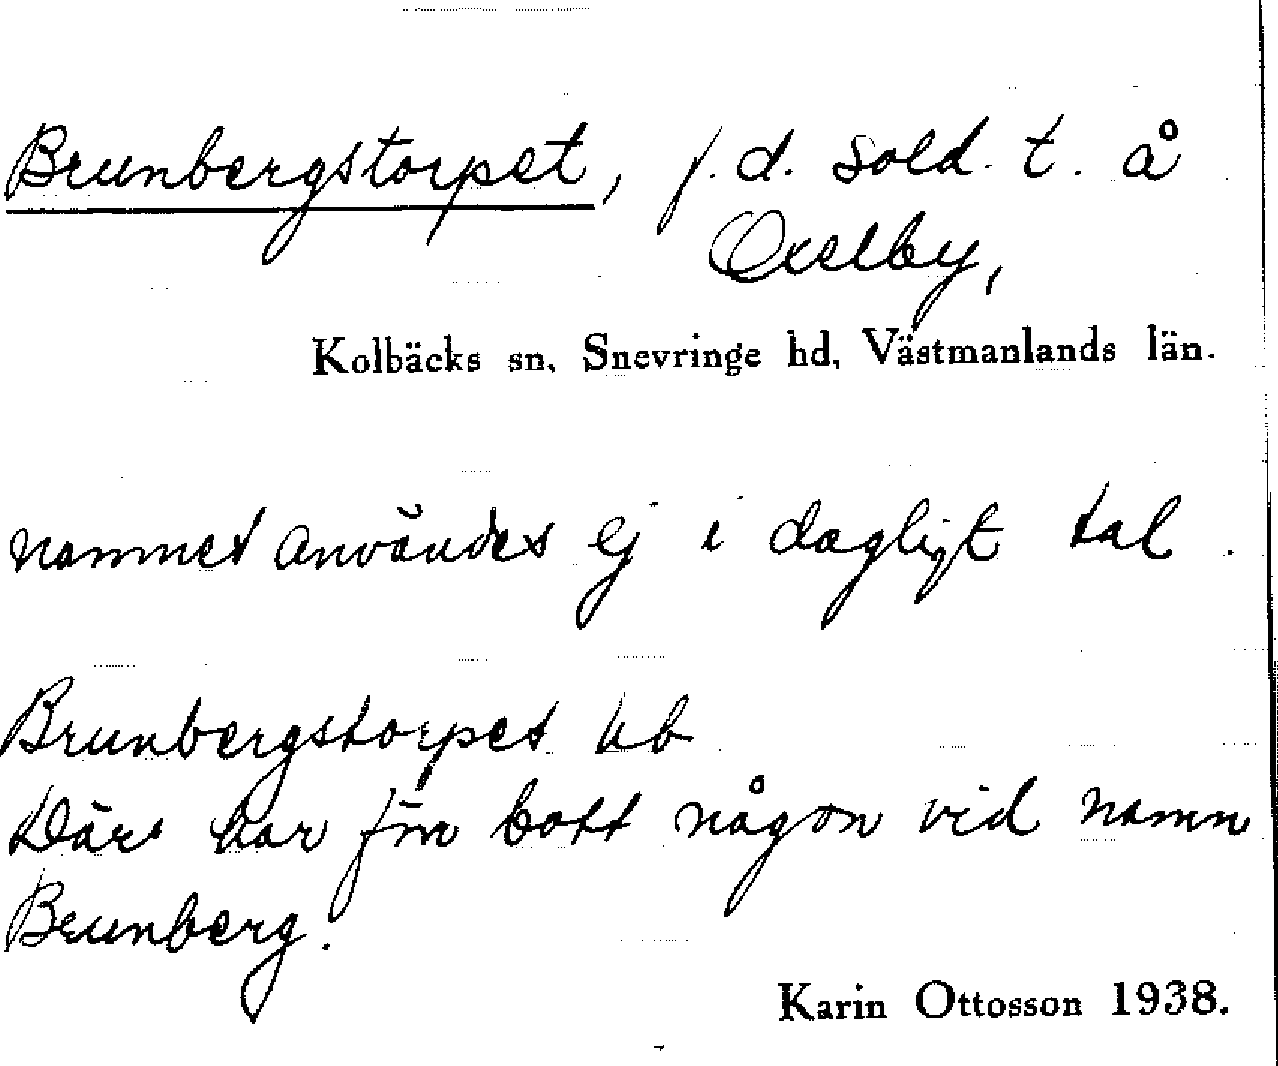 Brunbergstorpet, f.d. sold. t. å
Oxelby,
Kolbäcks sn, Snevringe hd, Västmanlands län.
namnet användes ej i dagligt tal.
Brunbergstorpet ub
Där har förr bott någon vid namn
Brunberg.
Karin Ottosson 1938.